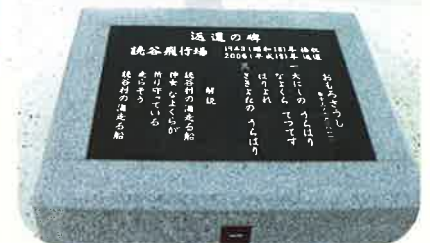 返還の碑
読谷飛行場
1943(昭和18)年 接収
おもろさうし
一 大にしの うらはり
なよくら てつてす
はりよれ
又 ききよたの うらはり
解説
読谷村の海走る船
神女 なよくらが
祈り守っている
走らそう
読谷村の海走る船